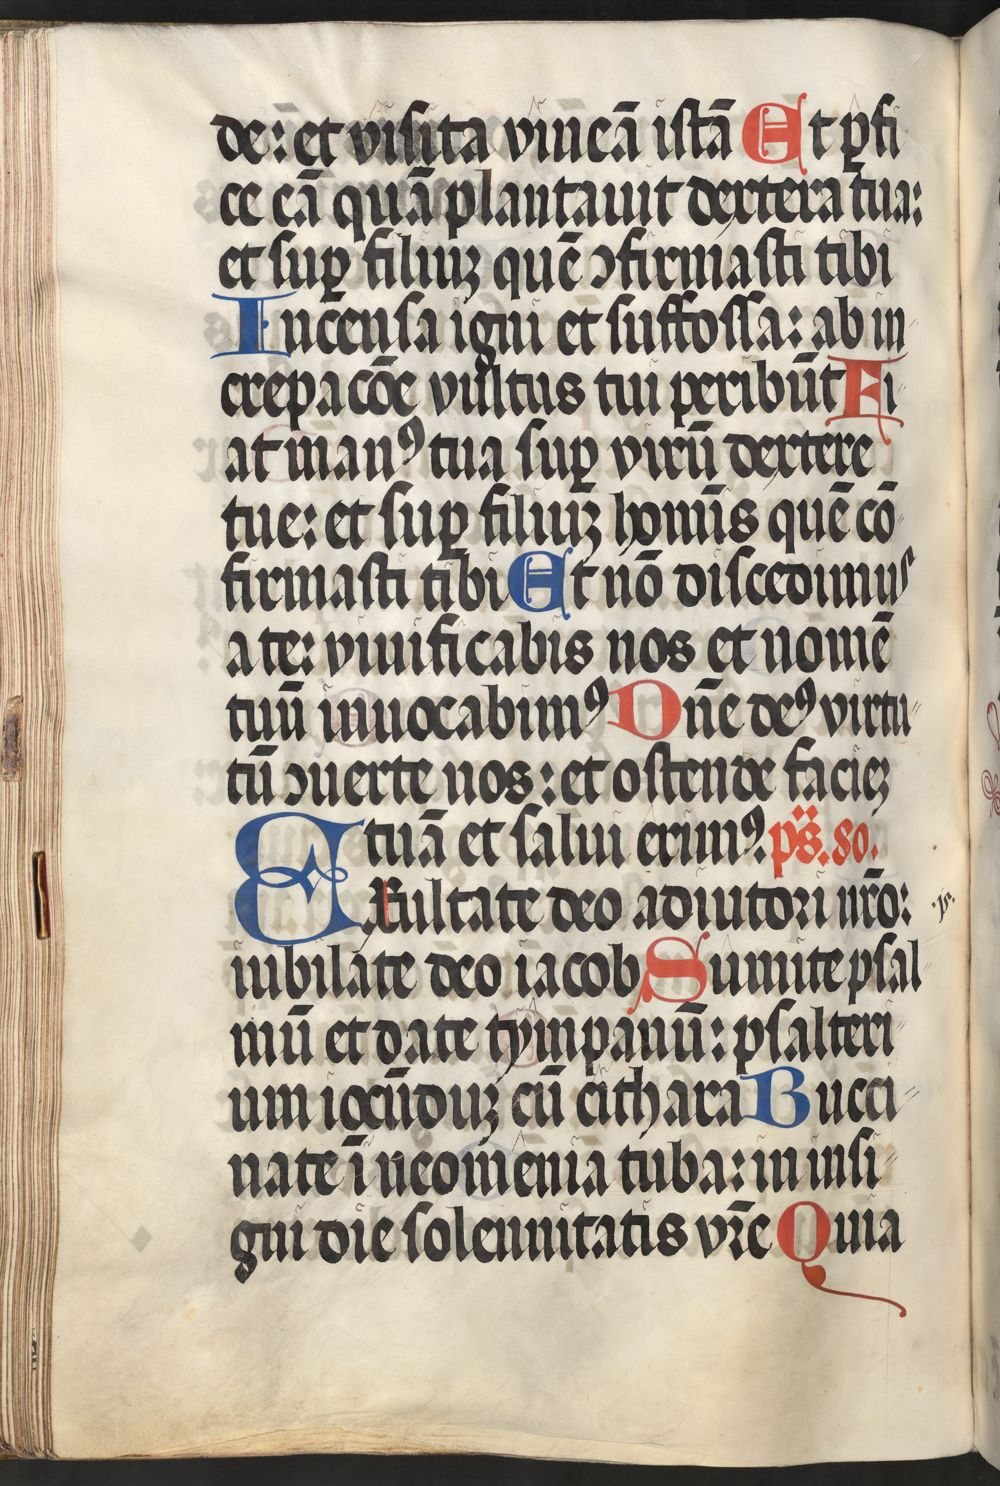 de: et visita vineā istā Et ꝑfi
ce eā quā plantauit dextera tua:
et suꝑ filiuꝫ quē ↄfirmasti tibi
Incensa igni et suffossa: ab in
crepacōe vultus tui peribūt Fi
at manꝰ tua suꝑ virū dextere
tue: et suꝑ filiuꝫ hominis quē cō
firmasti tibi Et nō discedimus
a te: viuificabis nos et nomē
tuū inuocabimꝰ Dn̄e deꝰ virtu
tū ↄuerte nos: et ostende facieꝫ
tuā et salui erimꝰ. ps. 80.
Exultate deo adiutori nr̄o:
iubilate deo iacob Sumite psal
mū et date tympanū: psalteri
um iocūduꝫ cū cithara Bucci
nate ī neomenia tuba: in insi
gni die solennitatis vr̄e Quia